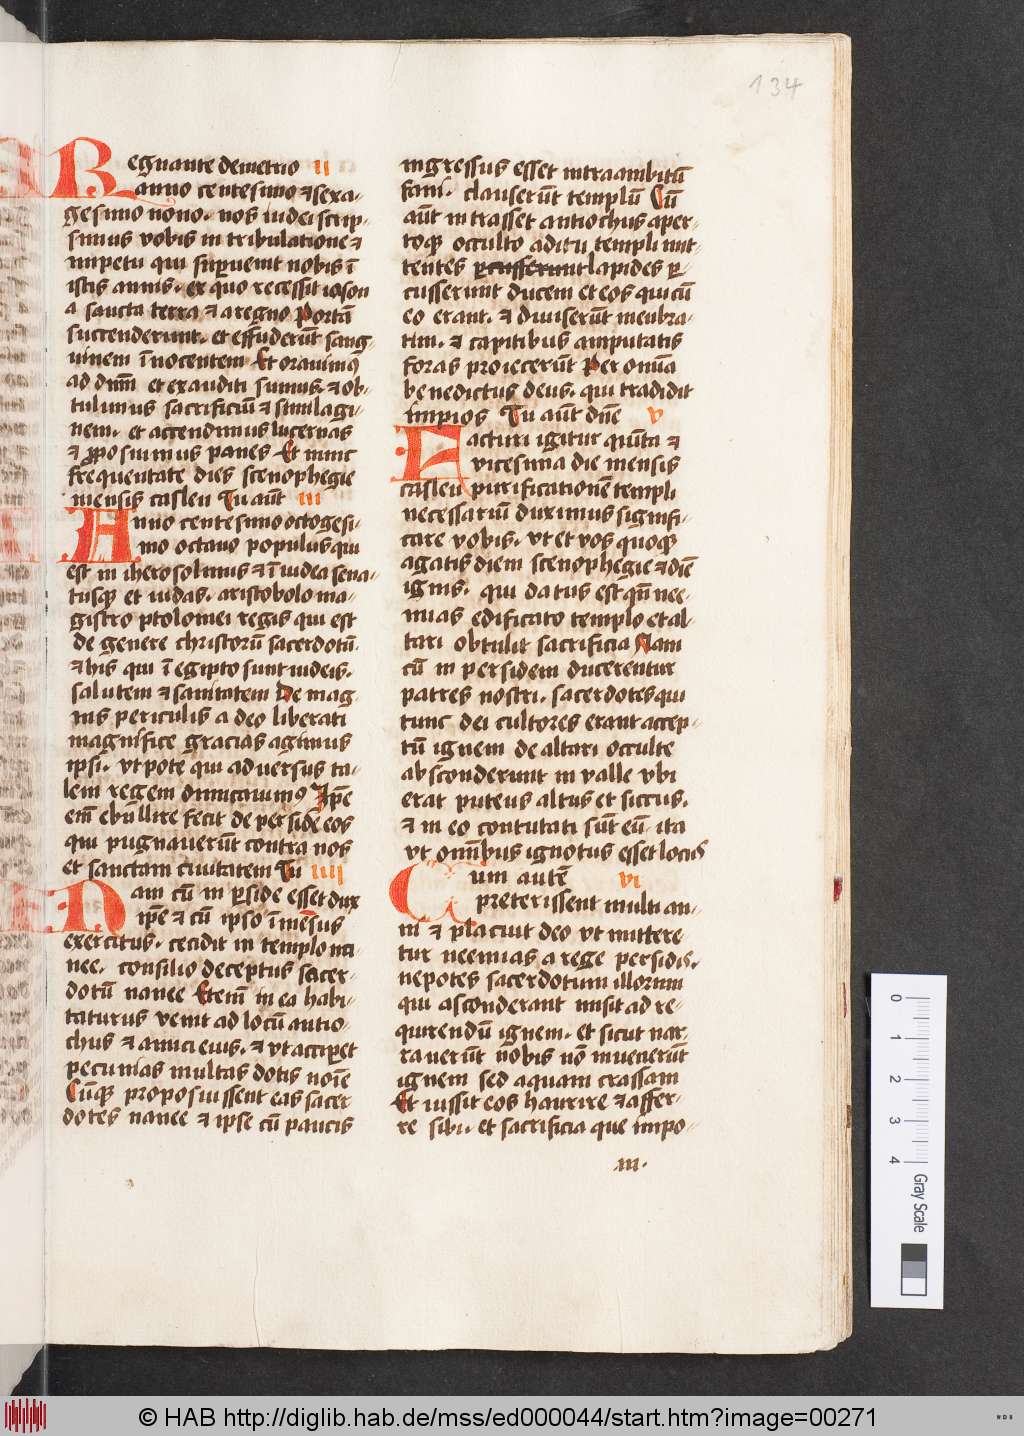 134
Regnante demetrio ii
anno centesimo ⁊ sexa-
gesimo nono. nos iudei scrip-
simus vobis in tribulatione ⁊
impetu qui supuenit nobis ī
istis annis. ex quo recessit iason
a sancta terra ⁊ a regno Portā
succenderunt. et effuderūt sang-
uinem īnocentem Et orauimꝰ
ad dnm̄ et exauditi sumus. ⁊ ob-
tulimus sacrificiū ⁊ similagi-
nem. et accendimus lucernas
⁊ ꝓposuimus panes Et nunc
frequentate dies scenophegie
mensis casleu Tu aūt iii
Anno centesimo octogesi-
mo octauo populus qui
est in iherosolimis ⁊ ī iudea sena-
tusqꝫ et iudas. aristobolo ma-
gistro ptolomei regis qui est
de genere christorū sacerdotū.
⁊ his qui ī egipto sunt iudeis.
salutem ⁊ sanitatem De mag-
nis periculis a deo liberati
magnifice gracias agimus
ipsi. vtpote qui aduersus ta-
lem regem dimicauimꝰ Ip̄e
em̄ ebullire fecit de perside eos
qui pugnauerūt contra nos
et sanctam ciuitatem Tu iiii
Nam cū in ꝑside esset dux
ip̄e ⁊ cū ipso īmensus
exercitus. cecidit in templo na-
nee. consilio deceptus sacer-
dotū nanee Etem̄ in ea habi-
taturus venit ad locū antio-
chus ⁊ amici eius. ⁊ vt acciꝑet
pecunias multas dotis noīe
Cūqꝫ proposuissent eas sacer
dotes nanee ⁊ ipse cū paucis
ingressus esset intra ambitū
fani. clauserūt templū Cū
aūt intrasset antiochus aper-
toqꝫ occulto aditu templi mit-
tentes lapides ꝑ-
cusserunt ducem et eos qui cū
eo erant. ⁊ diuiserūt menbra-
tim. ⁊ capitibus amputatis
foras proiecerūt Per omīa
benedictus deus. qui tradidit
impios Tu aūt dn̄e v
Facturi igitur quīta ⁊
vicesima die mensis
casleu purificationē templi
necessariū duximus signifi-
care vobis. vt et vos quoqꝫ
agatis diem scenophegie ⁊ diē
ignis. qui datus est qn̄ nee-
mias edificato templo et al-
tari obtulit sacrificia Nam
cū in persidem ducerentur
patres nostri. sacerdotes qui
tunc dei cultores erant accep-
tū ignem de altari occulte
absconderunt in valle vbi
erat puteus altus et siccus.
⁊ in eo contutati sūt eū. ita
vt omībus ignotus esset locus
Cum autē vi
preterissent multi an-
ni ⁊ placuit deo vt mittere-
tur neemias a rege persidis.
nepotes sacerdotum illorum
qui asconderant misit ad re-
quirendū ignem. et sicut nar-
rauerūt nobis nō inuenerūt
ignem sed aquam crassam
Et iussit eos haurire ⁊ affer-
re sibi. et sacrificia que impo-
.iii.
0 1 2 3 4
Gray Scale
© HAB http://diglib.hab.de/mss/ed000044/start.htm?image=00271